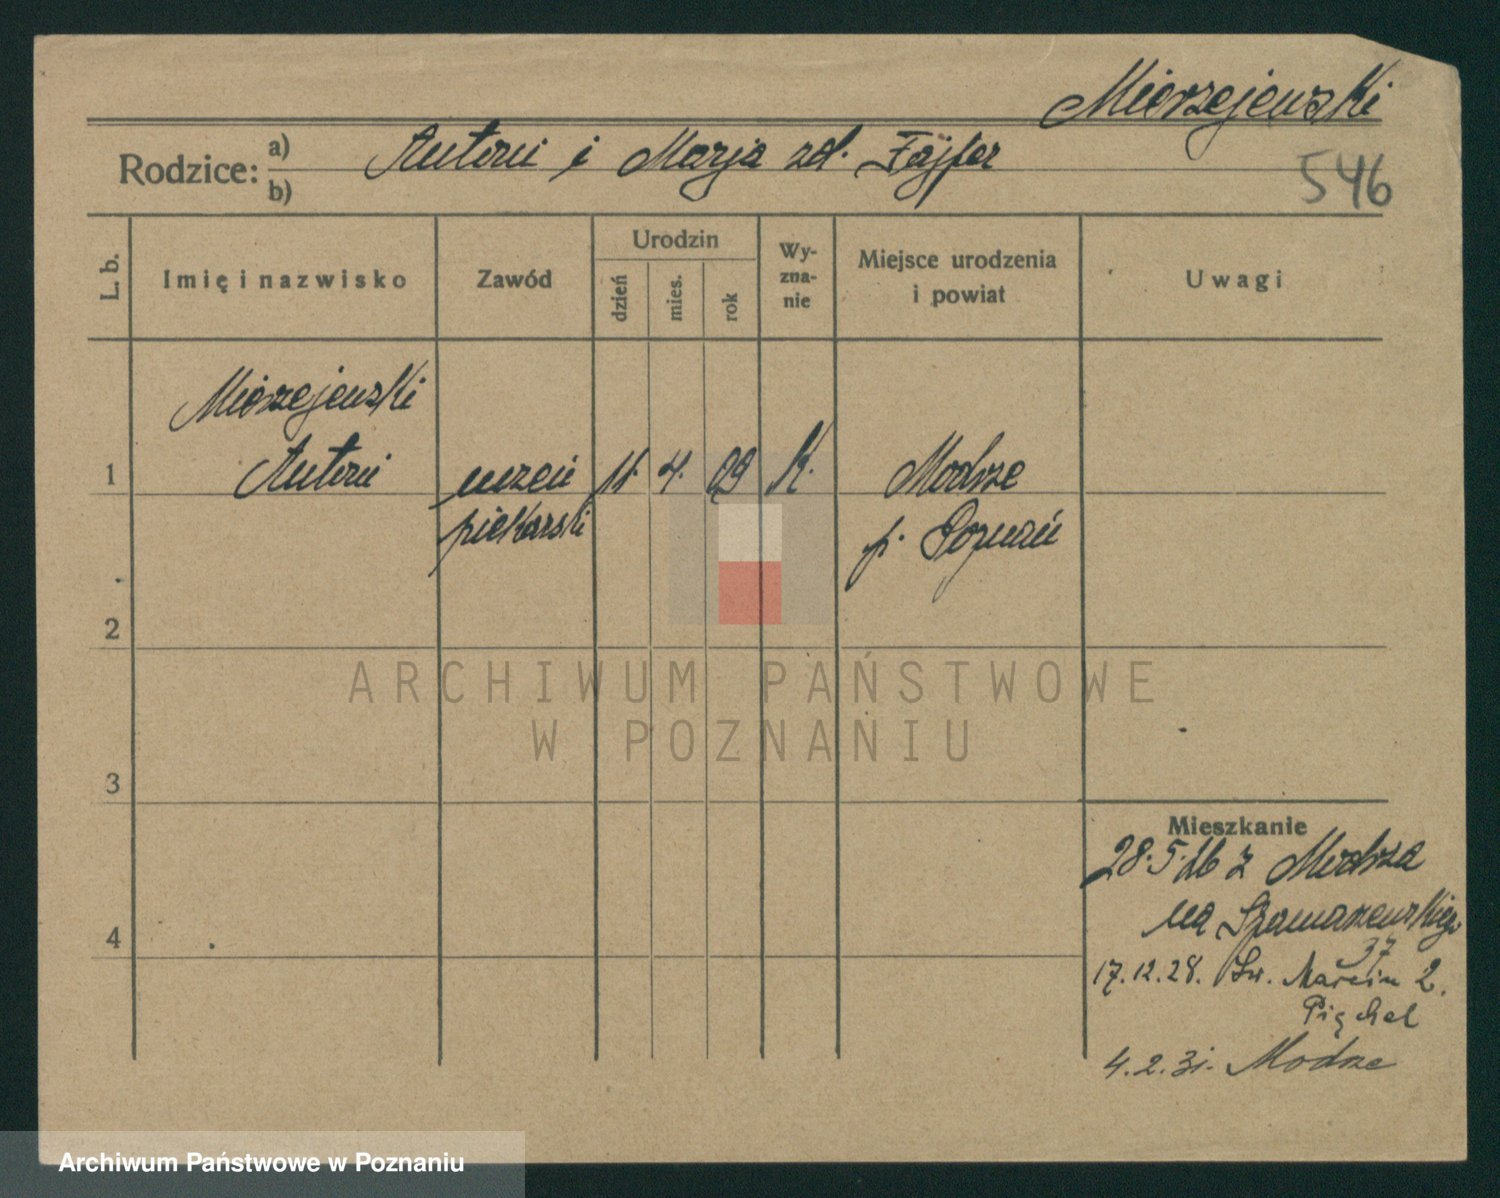 Mierzejewski
Rodzice: a) Antoni i Marja zd. Fajfer
b)
546
L. b.
Imię i nazwisko
Zawód
Urodzin
dzień
mies.
rok
Wy-
zna-
nie
Miejsce urodzenia
i powiat
Uwagi
Mierzejewski
1 Antoni uczeń 11. 4. 09 K. Modrze
piekarski p. Poznań
2
3
4
Mieszkanie
28.5.26 z Modrza
na Szamarzewskiego
37
17.12.28. Św. Marcin 2.
4.2.31. Modrze
ARCHIWUM PAŃSTWOWE
W POZNANIU
Archiwum Państwowe w Poznaniu